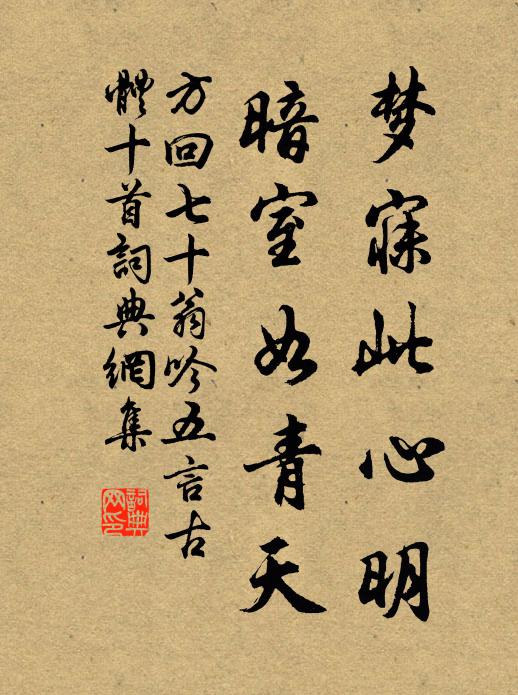 梦寐此心明
暗室如青天
方回七十翁吟五言古
體十首詞典網集
詞典網印